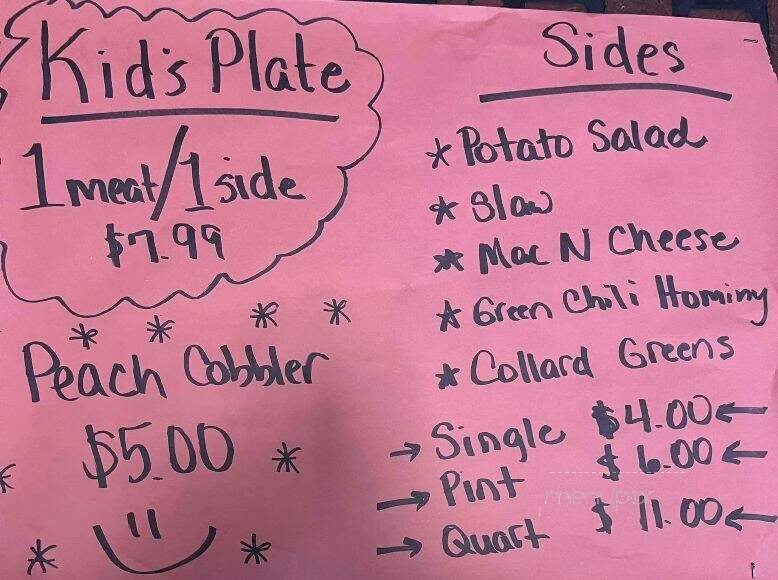 Kid's Plate
1 meat/1 side
$7.99
Peach Cobbler
$5.00
Sides
* Potato Salad
* Slaw
* Mac N Cheese
* Green Chili Hominy
* Collard Greens
→ Single $4.00 ←
→ Pint $6.00 ←
→ Quart $11.00 ←